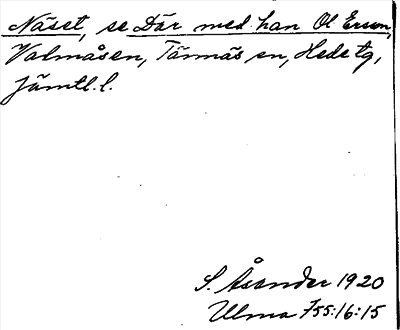 Näset, se Där med han Ol Ersson,
Valmåsen, Tännäs sn, Hede tg,
Jämtl. l.
S. Åsander 1920
Ulma 755:16:15